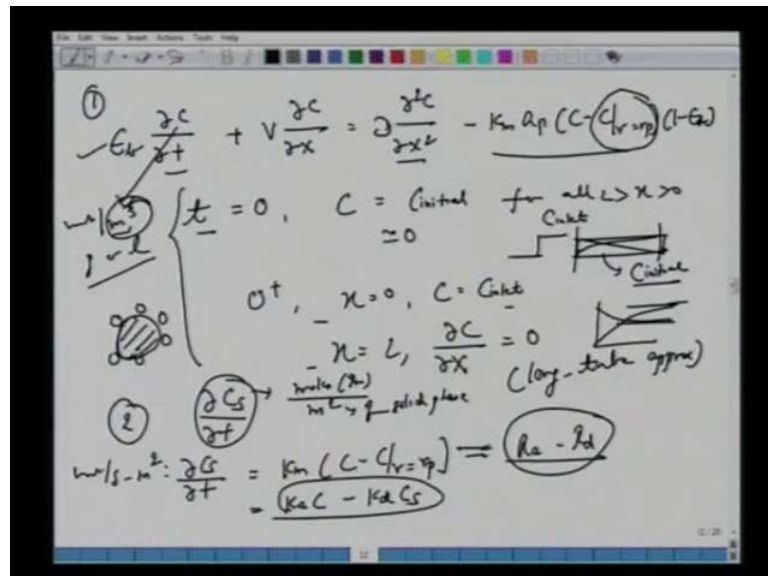 File Edit View Insert Actions Tools Help
①
ε_b ∂C/∂t + V ∂C/∂x = D ∂²C/∂x² - k_m a_p (C - C/r=r_p) (1-ε_b)
t = 0, C = C_initial for all L > x > 0
≃ 0
C_inlet
C_initial
0⁺, x = 0, C = C_inlet
x = L, ∂C/∂x = 0
(long-tube approx)
②
∂C_s/∂t → moles / m² → solid phase
∂C_s/∂t = k_m (C - C/r=r_p) = R_a - R_d
= k_a C - k_d C_s
12